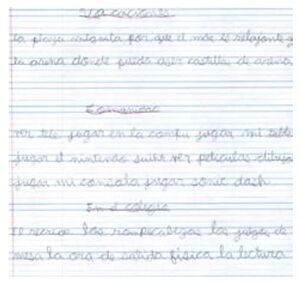 Vacaciones
La playa me gusta por que el mar es relajante y
la arena donde puedo aser castillos de arena
Comunidad
ver tele jugar en la compu jugar mi tablet
jugar el nintendo suiht ver peliculas dibujar
jugar mi consola jugar sonic dash
En el colegio
El recreo los rompecabezas los juegos de
mesa la ora de salida física la lectura